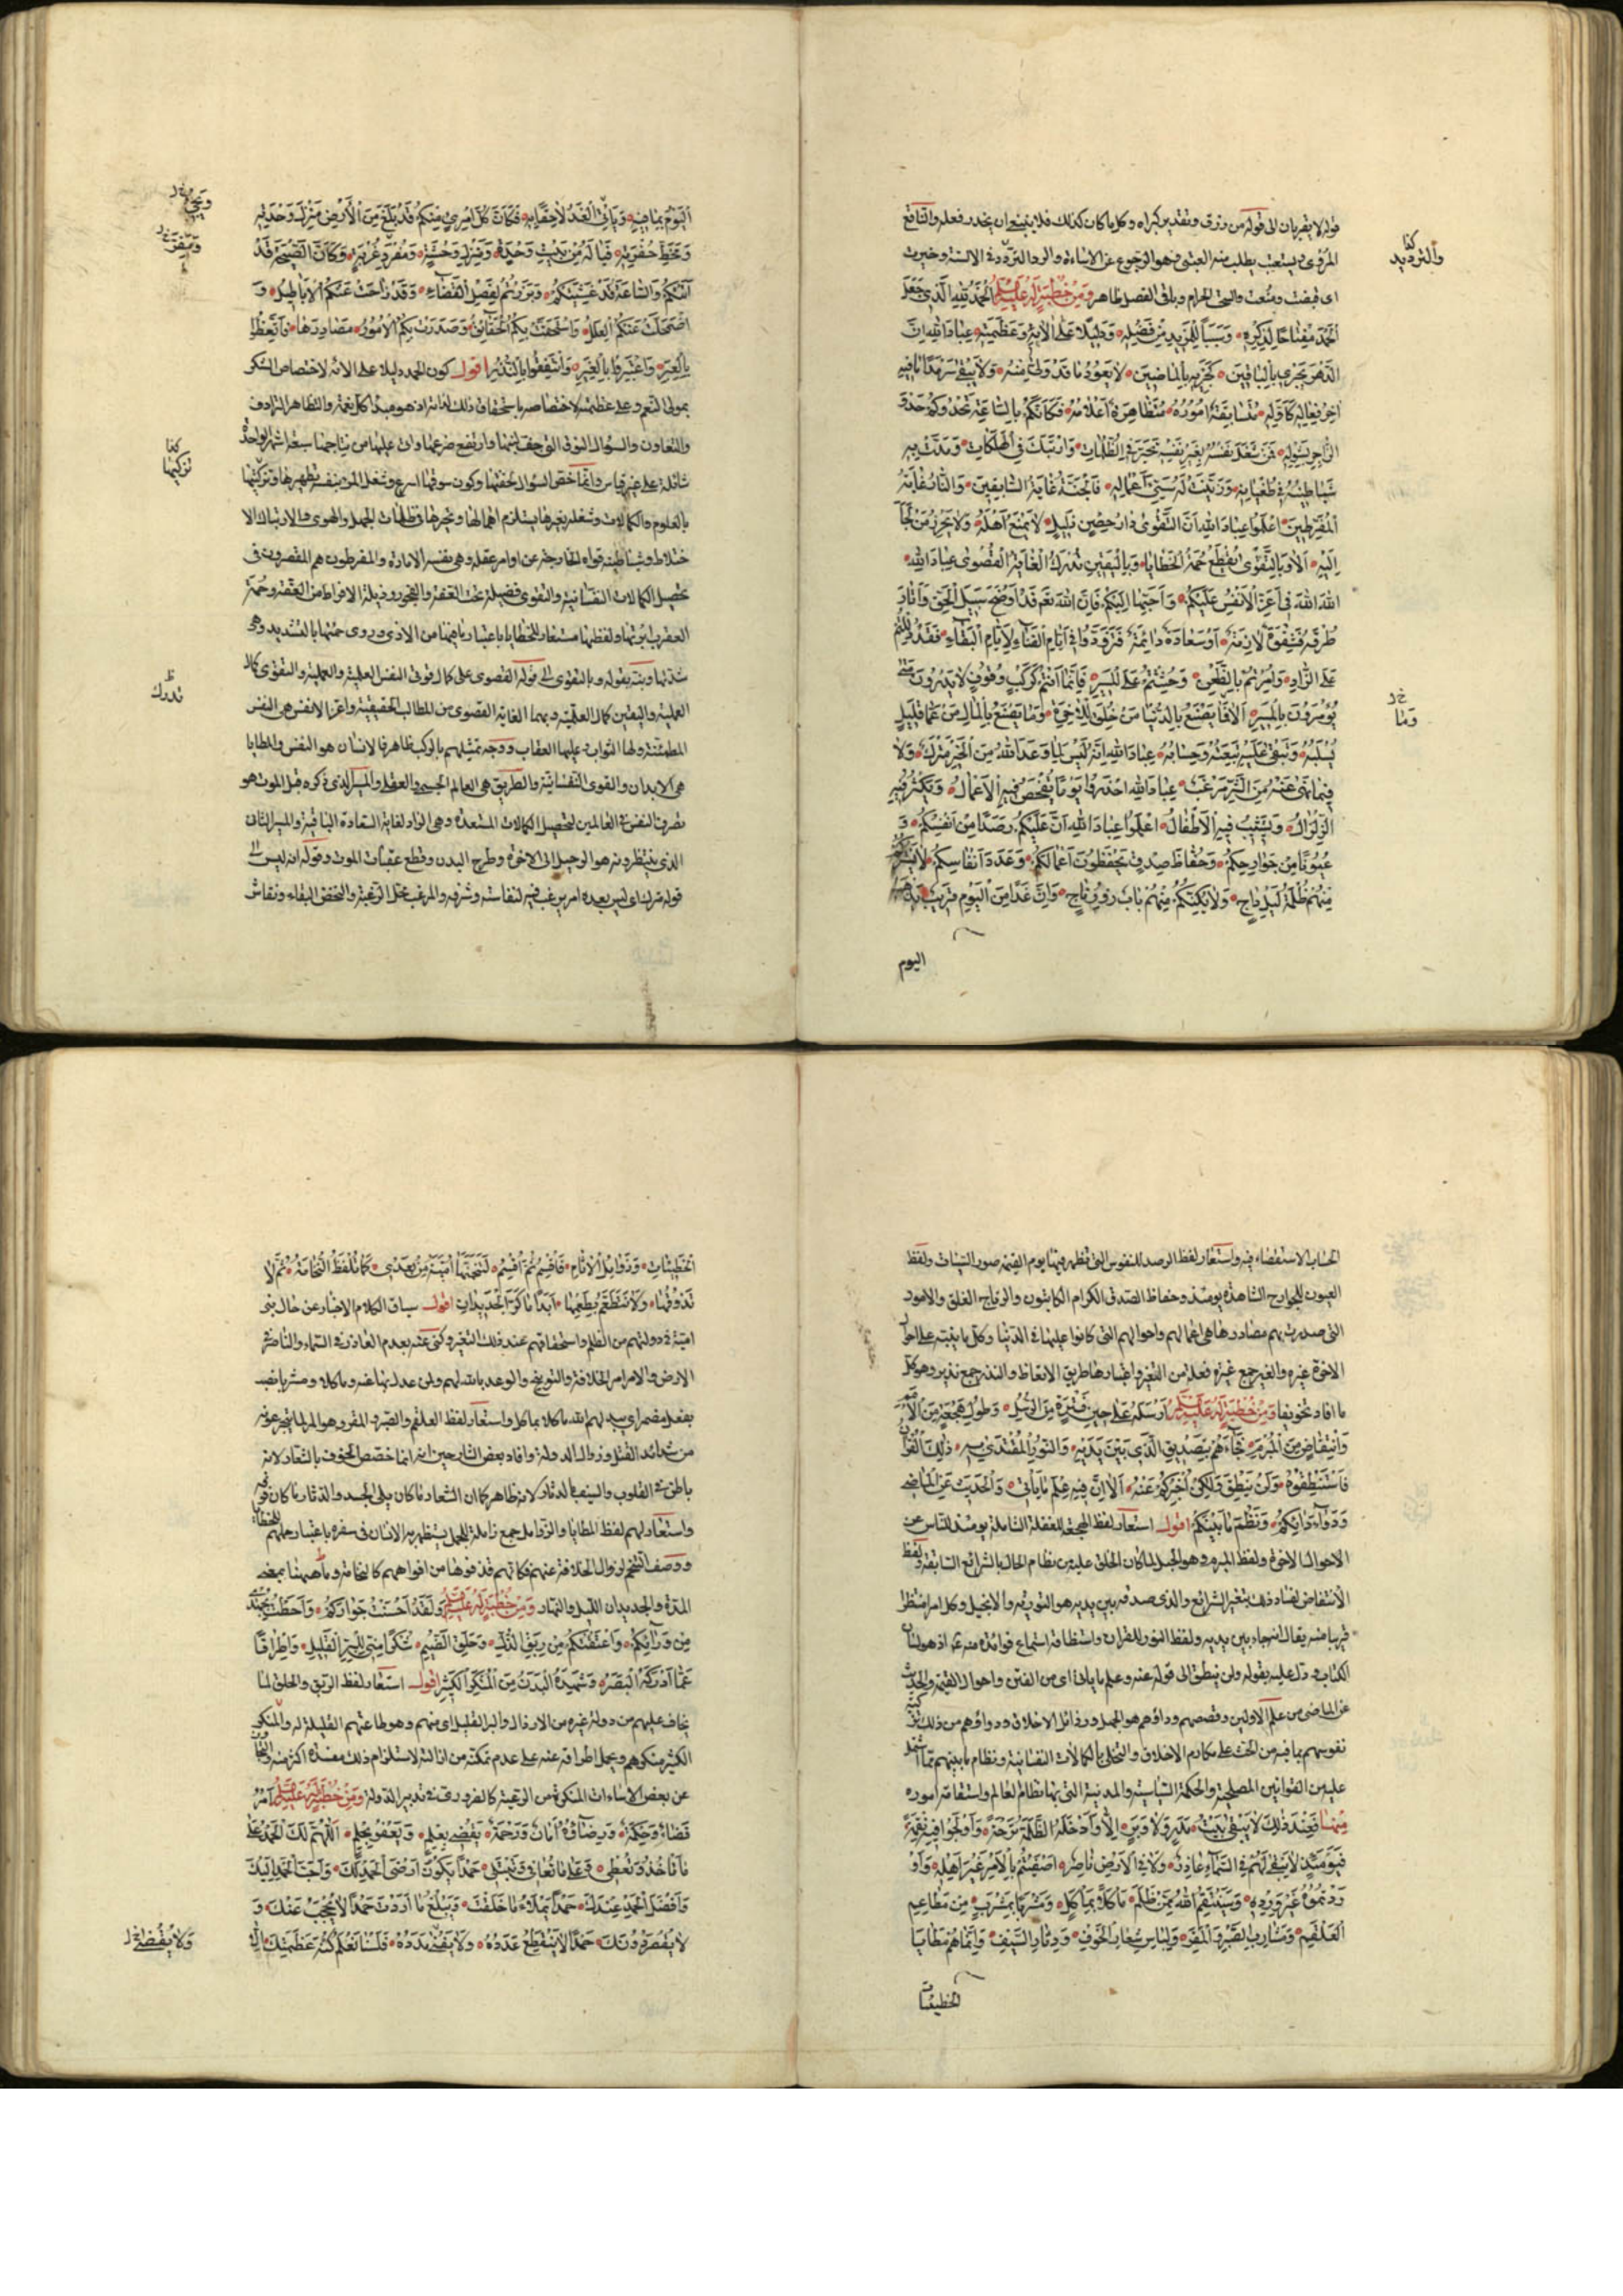 قوله لا يقربان الى قوله من رزق وتقديس كبراه وكل ما كان كذلك فلا ينبغى ان يحذر فعله والتنافع
المروى ويستعتب يطلب منه العتبى وهو الرجوع عن الاساءة والرد التردد فى الالسنة وخيرت
كذا
والترديد
اى قبضت ومنعت والسحت الحرام وباقى الفصل ظاهر وَمِنْ خُطْبَةٍ لَهُ عَلَيْهِ السَّلَامُ اَلْحَمْدُ لِلّٰهِ الَّذِى جَعَلَ
الْحَمْدَ مِفْتَاحًا لِذِكْرِهِ وَسَبَبًا لِلْمَزِيدِ مِنْ فَضْلِهِ وَدَلِيلًا عَلَى اٰلَائِهِ وَعَظَمَتِهِ عِبَادَ اللهِ اِنَّ
الدَّهْرَ يَجْرِى بِالْبَاقِينَ كَجَرْيِهِ بِالْمَاضِينَ لَا يَعُودُ مَا قَدْ وَلَّى مِنْهُ وَلَا يَبْقَى سَرْمَدًا مَا فِيهِ
اٰخِرُ فِعَالِهِ كَاَوَّلِهِ مُتَسَابِقَةٌ اُمُورُهُ مُتَظَاهِرَةٌ اَعْلَامُهُ فَكَاَنَّكُمْ بِالسَّاعَةِ تَحْدُوكُمْ حَدْوَ
الزَّاجِرِ بِشَوْلِهِ فَمَنْ شَغَلَ نَفْسَهُ بِغَيْرِ نَفْسِهِ تَحَيَّرَ فِى الظُّلُمَاتِ وَارْتَبَكَ فِى الْهَلَكَاتِ وَمَدَّتْ بِهِ
شَيَاطِينُهُ فِى طُغْيَانِهِ وَزَيَّنَتْ لَهُ سَيِّئَ اَعْمَالِهِ فَالْجَنَّةُ غَايَةُ السَّابِقِينَ وَالنَّارُ غَايَةُ
الْمُفَرِّطِينَ اِعْلَمُوا عِبَادَ اللهِ اَنَّ التَّقْوَى دَارُ حِصْنٍ ذَلِيلٍ لَا يَمْنَعُ اَهْلَهُ وَلَا يُحْرِزُ مَنْ لَجَأَ
اِلَيْهِ اَلَا وَبِالتَّقْوَى تُقْطَعُ حُمَةُ الْخَطَايَا وَبِالْيَقِينِ تُدْرَكُ الْغَايَةُ الْقُصْوَى عِبَادَ اللهِ
اللهَ اللهَ فِى اَعَزِّ الْاَنْفُسِ عَلَيْكُمْ وَاَحَبِّهَا اِلَيْكُمْ فَاِنَّ اللهَ نَعَمْ قَدْ اَوْضَحَ سَبِيلَ الْحَقِّ وَاَنَارَ
طُرُقَهُ فَشِقْوَةٌ لَازِمَةٌ اَوْ سَعَادَةٌ دَائِمَةٌ فَتَزَوَّدُوا فِى اَيَّامِ الْفَنَاءِ لِاَيَّامِ الْبَقَاءِ فَقَدْ دُلِلْتُمْ
عَلَى الزَّادِ وَاُمِرْتُمْ بِالظَّعْنِ وَحُثِثْتُمْ عَلَى الْمَسِيرِ فَاِنَّمَا اَنْتُمْ كَرَكْبٍ وُقُوفٍ لَا يَدْرُونَ مَتَى
خ د
وَمَا
يُؤْمَرُونَ بِالْمَسِيرِ اَلَا فَمَا يَصْنَعُ بِالدُّنْيَا مَنْ خُلِقَ لِلْاٰخِرَةِ وَمَا يَصْنَعُ بِالْمَالِ مَنْ عَمَّا قَلِيلٍ
يُسْلَبُهُ وَتَبْقَى عَلَيْهِ تَبِعَتُهُ وَحِسَابُهُ عِبَادَ اللهِ اِنَّهُ لَيْسَ لِمَا وَعَدَ اللهُ مِنَ الْخَيْرِ مَتْرَكٌ وَلَا
فِيمَا نَهَى عَنْهُ مِنَ الشَّرِّ مَرْغَبٌ عِبَادَ اللهِ احْذَرُوا يَوْمًا تُفْحَصُ فِيهِ الْاَعْمَالُ وَيَكْثُرُ فِيهِ
الزِّلْزَالُ وَيَشِيبُ فِيهِ الْاَطْفَالُ اِعْلَمُوا عِبَادَ اللهِ اَنَّ عَلَيْكُمْ رَصَدًا مِنْ اَنْفُسِكُمْ وَ
عُيُونًا مِنْ جَوَارِحِكُمْ وَحُفَّاظَ صِدْقٍ يَحْفَظُونَ اَعْمَالَكُمْ وَعَدَدَ اَنْفَاسِكُمْ لَا تَسْتُرُكُمْ
مِنْهُمْ ظُلْمَةُ لَيْلٍ دَاجٍ وَلَا يُكِنُّكُمْ مِنْهُمْ بَابٌ ذُو رِتَاجٍ وَاِنَّ غَدًا مِنَ الْيَوْمِ قَرِيبٌ يَذْهَبُ
اليوم
وَيَجِئُ
اَلْيَوْمُ بِمَا فِيهِ وَيَأْتِى الْغَدُ لَاحِقًا بِهِ فَكَاَنَّ كُلَّ امْرِئٍ مِنْكُمْ قَدْ بَلَغَ مِنَ الْاَرْضِ مَنْزِلَ وَحْدَتِهِ
وَمَخَطَّ حُفْرَتِهِ فَيَا لَهُ مِنْ بَيْتِ وَحْدَةٍ وَمَنْزِلِ وَحْشَةٍ وَمُفْرَدِ غُرْبَةٍ وَكَاَنَّ الصَّيْحَةَ قَدْ
اَتَتْكُمْ وَالسَّاعَةَ قَدْ غَشِيَتْكُمْ وَبَرَزْتُمْ لِفَصْلِ الْقَضَاءِ وَقَدْ زَاحَتْ عَنْكُمُ الْاَبَاطِيلُ وَ
اضْمَحَلَّتْ عَنْكُمُ الْعِلَلُ وَاسْتَحَقَّتْ بِكُمُ الْحَقَائِقُ وَصَدَرَتْ بِكُمُ الْاُمُورُ مَصَادِرَهَا وَاتَّعِظُوا
بِالْعِبَرِ وَاعْتَبِرُوا بِالْغِيَرِ وَانْتَفِعُوا بِالنُّذُرِ اقول كون الحمد دليلا على الائه لاختصاص الشكر
بمولى النعم وعلى عظمته لاختصاصه باستحقاق ذلك لذاته اذ هو مبدأ كل نعمة والتظاهر الترادف
والتعاون والشوال النوق التى جف لبنها وارتفع ضرعها واتى عليها من نتاجها سبعة اشهر الواحدة
كذا
تزكيتها
شائلة على غير قياس وانما خص الشوال لخفتها وكون سوقها اسرع وشغل المرء بنفسه تطهيرها وتزكيتها
بالعلوم والكمالات وشغله بغيرها يستلزم اهمالها وتحيرها فى ظلمات الجهل والهوى والارتباك الا
ختلاط وشياطينه قواه الخارجة عن اوامر عقله وهى نفسه الامارة والمفرطون هم المقصرون فى
تحصيل الكمالات النفسانية والتقوى فضيلة تحت العفة والفجور رذيلة الافراط من العفة وحمة
العقرب ابرتها ولفظها مستعار للخطايا باعتبار ما يلزمها من الاذى وروى حمتها بالتشديد وهى
شدتها ونبه بقوله وبالتقوى الى قوله القصوى على كمال قوتى النفس العلمية والعملية والتقوى كمال
تدرك
العملية واليقين كمال العلمية وبهما الغاية القصوى من المطالب الحقيقية واعز الانفس هى النفس
المطمئنة ولها الثواب وعليها العقاب ووجه تمثيلهم بالركب ظاهر فالانسان هو النفس والمطايا
هى الابدان والقوى النفسانية والطريق هى العالم الحسى والعقلى والسير الذى ذكره قبل الموت هو
تصرف النفس فى العالمين لتحصيل الكمالات المستعدة وهى الزاد لغاية السعادة الباقية والسير الثانى
الذى ينتظرونه هو الرحيل الى الاخرة وطرح البدن وقطع عقبات الموت وقوله انه ليس الى
قوله مترك اى ليس بعده امر يرغب فيه لنفاسته وشرفه والمرغب محل الرغبة والفحص البقاء ونقاش
الحساب الاستقصاء فيه واستعار لفظ الرصد للنفوس التى تظهر فيها يوم القيمة صور السيئات ولفظ
العيون للجوارح الشاهدة يومئذ وحفاظ الصدق الكرام الكاتبون والرتاج الغلق والامور
التى صدرت بهم مصادرها هى اعمالهم واحوالهم التى كانوا عليها فى الدنيا وكل ما ينبه على احوال
الاخرة عبرة والغير جمع غيرة فعلة من التغير واعتبارها طريق الاتعاظ والنذر جمع نذير وهو كل
ما افاد تخويفا وَمِنْ خُطْبَةٍ لَهُ عَلَيْهِ السَّلَامُ اَرْسَلَهُ عَلَى حِينِ فَتْرَةٍ مِنَ الرُّسُلِ وَطُولِ هَجْعَةٍ مِنَ الْاُمَمِ
وَانْتِقَاضٍ مِنَ الْمُبْرَمِ فَجَاءَهُمْ بِتَصْدِيقِ الَّذِى بَيْنَ يَدَيْهِ وَالنُّورِ الْمُقْتَدَى بِهِ ذٰلِكَ الْقُرْاٰنُ
فَاسْتَنْطِقُوهُ وَلَنْ يَنْطِقَ وَلٰكِنْ اُخْبِرُكُمْ عَنْهُ اَلَا اِنَّ فِيهِ عِلْمَ مَا يَأْتِى وَالْحَدِيثَ عَنِ الْمَاضِى
وَدَوَاءَ دَائِكُمْ وَنَظْمَ مَا بَيْنَكُمْ اقول استعار لفظ الهجعة للغفلة الشاملة يومئذ للناس عن
الاحوال الاخرة ولفظ المبرم وهو الحبل لما كان الخلق عليه من نظام الحال بالشرائع السابقة ولفظ
الانتقاض لفساد ذلك بتغير الشرائع والذى صدقه بين يديه هو التورية والانجيل وكل امر منتظر
قريبا منه يقال انه جاء بين يديه ولفظ النور للقران واستنطاقه استماع فوائده منه ع اذ هو لسان
الكتاب ودل عليه بقوله ولن ينطق الى قوله عنه وعلم ما يأتى اى من الفتن واحوال القيمة والحديث
عن الماضى من علم الاولين وقصصهم ودائهم هو الجهل ورذائل الاخلاق ودواؤهم من ذلك تزكية
نفوسهم بما فيه من الحث على مكارم الاخلاق والتحلى بالكمالات النفسانية ونظام ما بينهم مما اشتمل
عليه من القوانين المصلحية والحكمة السياسية والمدنية التى بها نظام العالم واستقامة اموره
مِنْهَا فَعِنْدَ ذٰلِكَ لَا يَبْقَى بَيْتُ مَدَرٍ وَلَا وَبَرٍ اِلَّا وَاَدْخَلَهُ الظَّلَمَةُ تَرْحَةً وَاَوْلَجُوا فِيهِ نِقْمَةً
فَيَوْمَئِذٍ لَا يَبْقَى لَهُمْ فِى السَّمَاءِ عَاذِرٌ وَلَا فِى الْاَرْضِ نَاصِرٌ اَصْفَيْتُمْ بِالْاَمْرِ غَيْرَ اَهْلِهِ وَاَوْ
رَدْتُمُوهُ غَيْرَ وِرْدِهِ وَسَيَنْتَقِمُ اللهُ مِمَّنْ ظَلَمَ مَأْكَلًا بِمَأْكَلٍ وَمَشْرَبًا بِمَشْرَبٍ مِنْ مَطَاعِمِ
الْعَلْقَمِ وَمَشَارِبِ الصَّبِرِ وَالْمَقِرِ وَلِبَاسِ شِعَارِ الْخَوْفِ وَدِثَارِ السَّيْفِ وَاِنَّمَا هُمْ مَطَايَا
الخطيئات
الْخَطِيئَاتِ وَزَوَامِلُ الْاٰثَامِ فَاُقْسِمُ ثُمَّ اُقْسِمُ لَتَنْخَمَنَّهَا اُمَيَّةُ مِنْ بَعْدِى كَمَا تُلْفَظُ النُّخَامَةُ ثُمَّ لَا
تَذُوقُهَا وَلَا تَتَطَعَّمُ بِطَعْمِهَا اَبَدًا مَا كَرَّ الْجَدِيدَانِ اقول سياق الكلام الاخبار عن حال بنى
امية فى دولتهم من الظلم واستحقاقهم عند ذلك التغير وكنى عنه بعدم العاذر فى السماء والناصر فى
الارض والامر امر الخلافة والتوبيخ والوعد بالله لهم ولمن عدل بها عنه وماكلا ومشربا نصب
بفعل مضمر اى يبدلهم الله ماكلا بماكل واستعار لفظ العلقم والصبر والمقر وهو المر لما يتجرعونه
من شدائد القتل وزوال الدولة وافاد بعض الشارحين انه انما خصص الخوف بالشعار لانه
باطن فى القلوب والسيف بالدثار لانه ظاهر كما ان الشعار ما كان يلى الجسد والدثار ما كان فوقه
واستعار لهم لفظ المطايا والزوامل جمع زاملة للجمل يستظهر به الانسان فى سفره باعتبار حملهم للخطايا
ووصف التنخم لزوال الخلافة عنهم فكانهم قذفوها من افواههم كالنخامة وما ههنا بمعنى
المدة والجديدان الليل والنهار وَمِنْ خُطْبَةٍ لَهُ عَلَيْهِ السَّلَامُ وَلَقَدْ اَحْسَنْتُ جِوَارَكُمْ وَاَحَطْتُ بِجُهْدِى
مِنْ وَرَائِكُمْ وَاَعْتَقْتُكُمْ مِنْ رِبَقِ الذُّلِّ وَحَلَقِ الضَّيْمِ شُكْرًا مِنِّى لِلْبِرِّ الْقَلِيلِ وَاِطْرَاقًا
عَمَّا اَدْرَكَهُ الْبَصَرُ وَشَهِدَهُ الْبَدَنُ مِنَ الْمُنْكَرِ الْكَثِيرِ اقول استعار لفظ الربق والحلق لما
يخاف عليهم من دولة غيره من الارذال والبر القليل اى منهم وهو طاعتهم القليلة له والمنكر
الكثير منكرهم ويحمل اطراقه عنه على عدم تمكنه من ازالته لاستلزام ذلك مفسدة اكثر منه والتجاوز
عن بعض الاساءات المنكرة من الرعية كالضرورى فى تدبير الدولة وَمِنْ خُطْبَةٍ لَهُ عَلَيْهِ السَّلَامُ اَمْرُهُ
قَضَاءٌ وَحِكْمَةٌ وَرِضَاهُ اَمَانٌ وَرَحْمَةٌ يَقْضِى بِعِلْمٍ وَيَعْفُو بِحِلْمٍ اَللّٰهُمَّ لَكَ الْحَمْدُ عَلَى
مَا تَأْخُذُ وَتُعْطِى وَعَلَى مَا تُعَافِى وَتَبْتَلِى حَمْدًا يَكُونُ اَرْضَى الْحَمْدِ لَكَ وَاَحَبَّ الْحَمْدِ اِلَيْكَ
وَاَفْضَلَ الْحَمْدِ عِنْدَكَ حَمْدًا يَمْلَأُ مَا خَلَقْتَ وَيَبْلُغُ مَا اَرَدْتَ حَمْدًا لَا يُحْجَبُ عَنْكَ وَ
لَا يُقْصَرُ دُونَكَ حَمْدًا لَا يَنْقَطِعُ عَدَدُهُ وَلَا يَفْنَى مَدَدُهُ فَلَسْنَا نَعْلَمُ كُنْهَ عَظَمَتِكَ